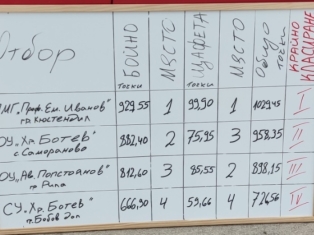 Отбор БОЙНО точки МЯСТО ЩАФЕТА МЯСТО Общо точки КРАЙНО КЛАСИРАНЕ
ПМГ „Проф. Ем. Иванов" 929,55 1 99,90 1 1029,45 I
гр. Кюстендил
ОУ „Хр. Ботев" 882,40 2 75,95 3 958,35 II
с. Самораново
ОУ „Ав. Попстоянов" 812,60 3 85,55 2 898,15 III
гр. Рила
СУ „Хр. Ботев" 666,90 4 59,66 4 726,56 IV
гр. Бобов дол